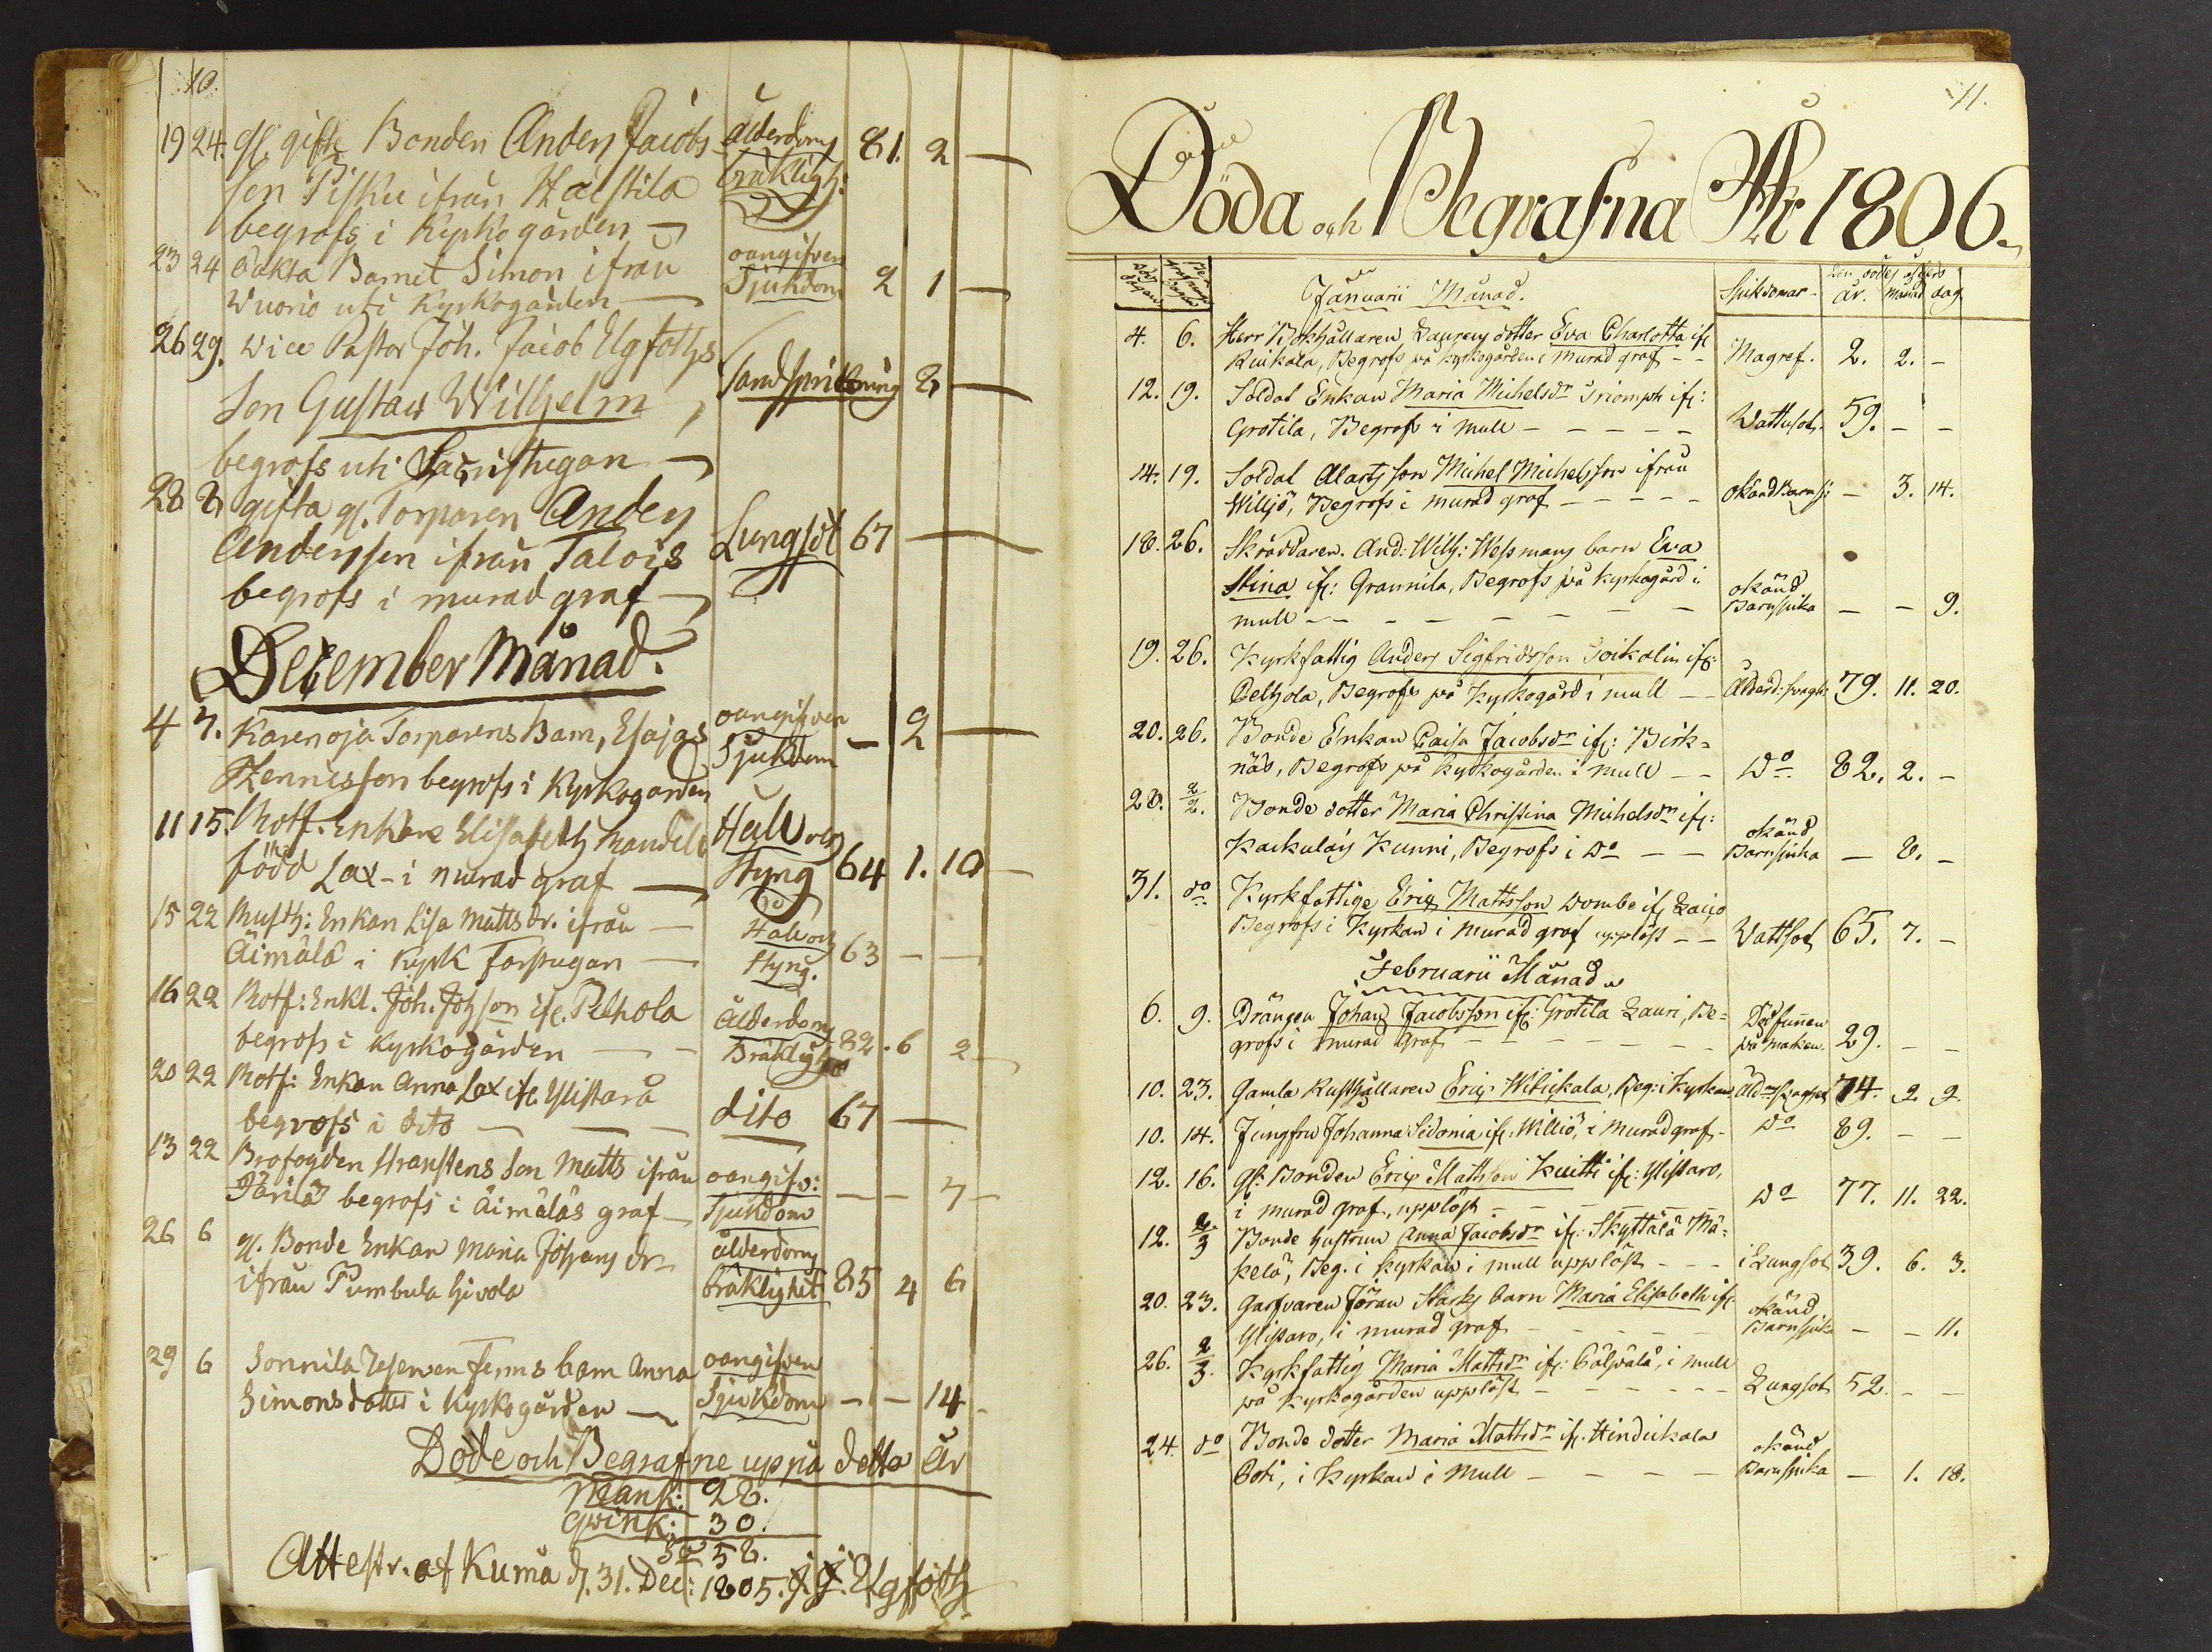 10.
19 24. gl. gifte Bonden Anders Jacobs- ålderdoms 81. 2 —
son Pisku ifrån Haistila bräkligh:
begrofs i Kyrkogården —
23 24 oäkta Barnet Simon ifrån oangifven 2 1 —
Wuorio uti Kyrkogården — Sjukdom
26 29. Vice Pastor Joh. Jacob Elgfoths
Son Gustaw Wilhelm 8 —
begrofs uti Sacristugan —
28 8 gifta gl. Torparen Anders Lungsot 67 —
Andersson ifrån Talois
begrofs i murad graf —
December Månad.
4 7. Karenoja Torparens Barn, Esajas oangifven — 2 —
Hennisson begrofs i Kyrkogården Sjukdom
11 15. Rotf. Enkan Elisabeth Mandell Håll och 64 1. 10 —
född Lax - i murad graf — Styng
15 22 Rusth: Enkan Lisa Mattsdr. ifrån — Håll och 63 — —
Äimälä i Kyrk Farstugan — Styng.
16 22 Rotf: Enkl. Joh. Johsson ifr. Pelhola Ålderdoms 82. 6 2
begrofs i Kyrkogården — — Bräkligh
20 22 Rotf: Enkan Anna Lax ifr. Ylistarå dito 67 —
begrofs i dito — — —
13 22 Brofogden Stranstens Son Matts ifrån oangifv: — — 7 —
Järilä begrofs i Äimäläs graf — Sjukdom
26 6 gl. Bonde Enkan Maria Johans dr ålderdoms 85 4 6
ifrån Pumbula Hivola bräklighet
29 6 Sonnila barn Anna oangifven — — 14 -
Simonsdotter i Kyrkogården — Sjukdom
Döde och Begrafne uppå detta År
Mank: 28.
Qwink: 30.
Sa 58.
Attestr. af Kumå d. 31. Dec: 1805. J. J. Elgfoth
11.
Döda och Begrafna År 1806.
Januarii Månad. Sjukdomar. År. Månad dag
4. 6. Herr Bokhållaren dotter Eva Charlotta ifr Magref. 2. 2. -
Kiukala, Begrofs på kyrkogården i murad graf - -
12. 19. Soldat Enkan Maria Michelsdr Triomph ifr: Wattusot. 59. - -
Grotila, Begrofs i mull - - - - -
14. 19. Soldat Alarts son Michel Michelsson ifrån okänd Barnsj: — 3. 14.
Williö, Begrofs i murad graf - - - - -
18. 26. Skräddaren. And: Wilh: Wessmans barn Eva
Stina ifr: Grannila, Begrofs på kyrkogård i okänd
mull - - - - - - Barnsjuka — - 9.
19. 26. Kyrkfattig Anders Sigfridsson Toikalin ifr:
Pelhola, Begrofs på Kyrkogård i mull - - Ålderd: svagh: 79. 11. 20.
20. 26. Bonde Enkan Caisa Jacobsdr ifr: Birk-
näs, Begrofs på Kyrkogården i mull - - Do 82. 2. -
28. 2/2. Bonde dotter Maria Christina Michelsdr ifr: okänd
Kunni, Begrofs i Do - - Barnsjuka — 8. -
31. do Kyrkfattige Eric Mattsson Wombe ifr Laiio
Begrofs i Kyrkan i murad graf upplöst - - Wattsot 65. 7. -
Februarii Månad
6. 9. Drängen Johan Jacobsson ifr: Grotila Lauri, Be- Död funnen
grofs i murad Graf - - - - - - - på marken. 29. - -
10. 23. Gamla Rusthållaren Eric Witickala, Beg: i Kyrkan 74. 2 9
10. 14. Jungfru Johanna Sidonia ifr: Williö, i Murad graf - Do 89. - -
12. 16. Gl: Bonden Eric Mattsson Kuitti ifr: Ylistaro, Do 77. 11. 22.
i murad graf, upplöst - - - - -
12. 2/3 Bonde Hustrun Anna Jacobsdr ifr: Skyttälä Mä-
kelä, Beg. i kyrkan i mull upplöst - - - i Lungsot 39. 6. 3.
20. 23. Garfvaren Jöran Starks barn Maria Elisabeth ifr okänd
Ylistaro, i murad graf - - - - - Barnsjuka — - 11.
26. 2/3. Kyrkfattig Maria Mattsdr ifr: i mull
på Kyrkogården upplöst - - - - - - Lungsot 52. - —
24. do Bonde dotter Maria Mattsdr ifr. Hindickala okänd
i Kyrkan i Mull - - - - Barnsjuka — 1. 18.